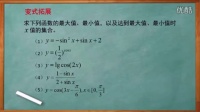 变式拓展
求下列函数的最大值、最小值，以及达到最大值、最小值时
x 值的集合。
(1) y=-sin²x+sin x+2
(2) y=(1/2)^{sin x}
(3) y=lg cos(2x)
(4) y=(1-sin x)/(2+sin x)
(5) y=cos(3x-π/6),x∈[0,π/3]